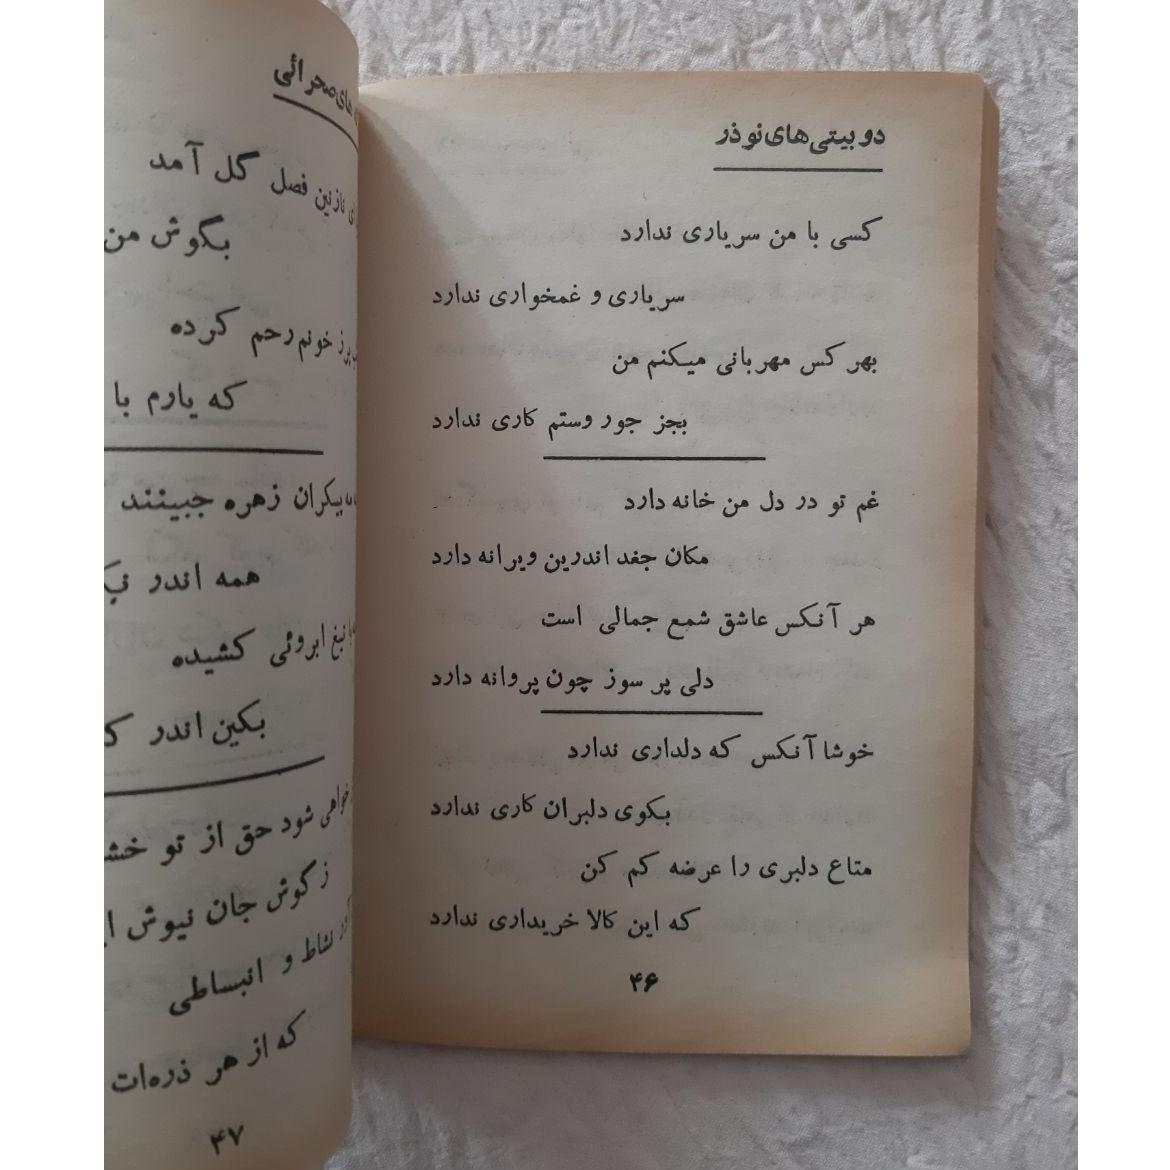 دو بیتی های نوذر
کسی با من سریاری ندارد
سریاری و غمخواری ندارد
بهر کس مهربانی میکنم من
بجز جور وستم کاری ندارد
غم تو در دل من خانه دارد
مکان جغد اندرین ویرانه دارد
هر آنکس عاشق شمع جمالی است
دلی پر سوز چون پروانه دارد
خوشا آنکس که دلداری ندارد
بکوی دلبران کاری ندارد
متاع دلبری را عرضه کم کن
که این کالا خریداری ندارد
۴۶
های صحرائی
نازنین فصل گل آمد
بگوش من
خونم رحم کرده
که یارم با
پیکران زهره جبینند
همه اندر
ابروئی کشیده
بکین اندر
خواهی شود حق از تو
ز گوش جان نیوش
نشاط و انبساطی
که از هر ذره‌ات
۴۷